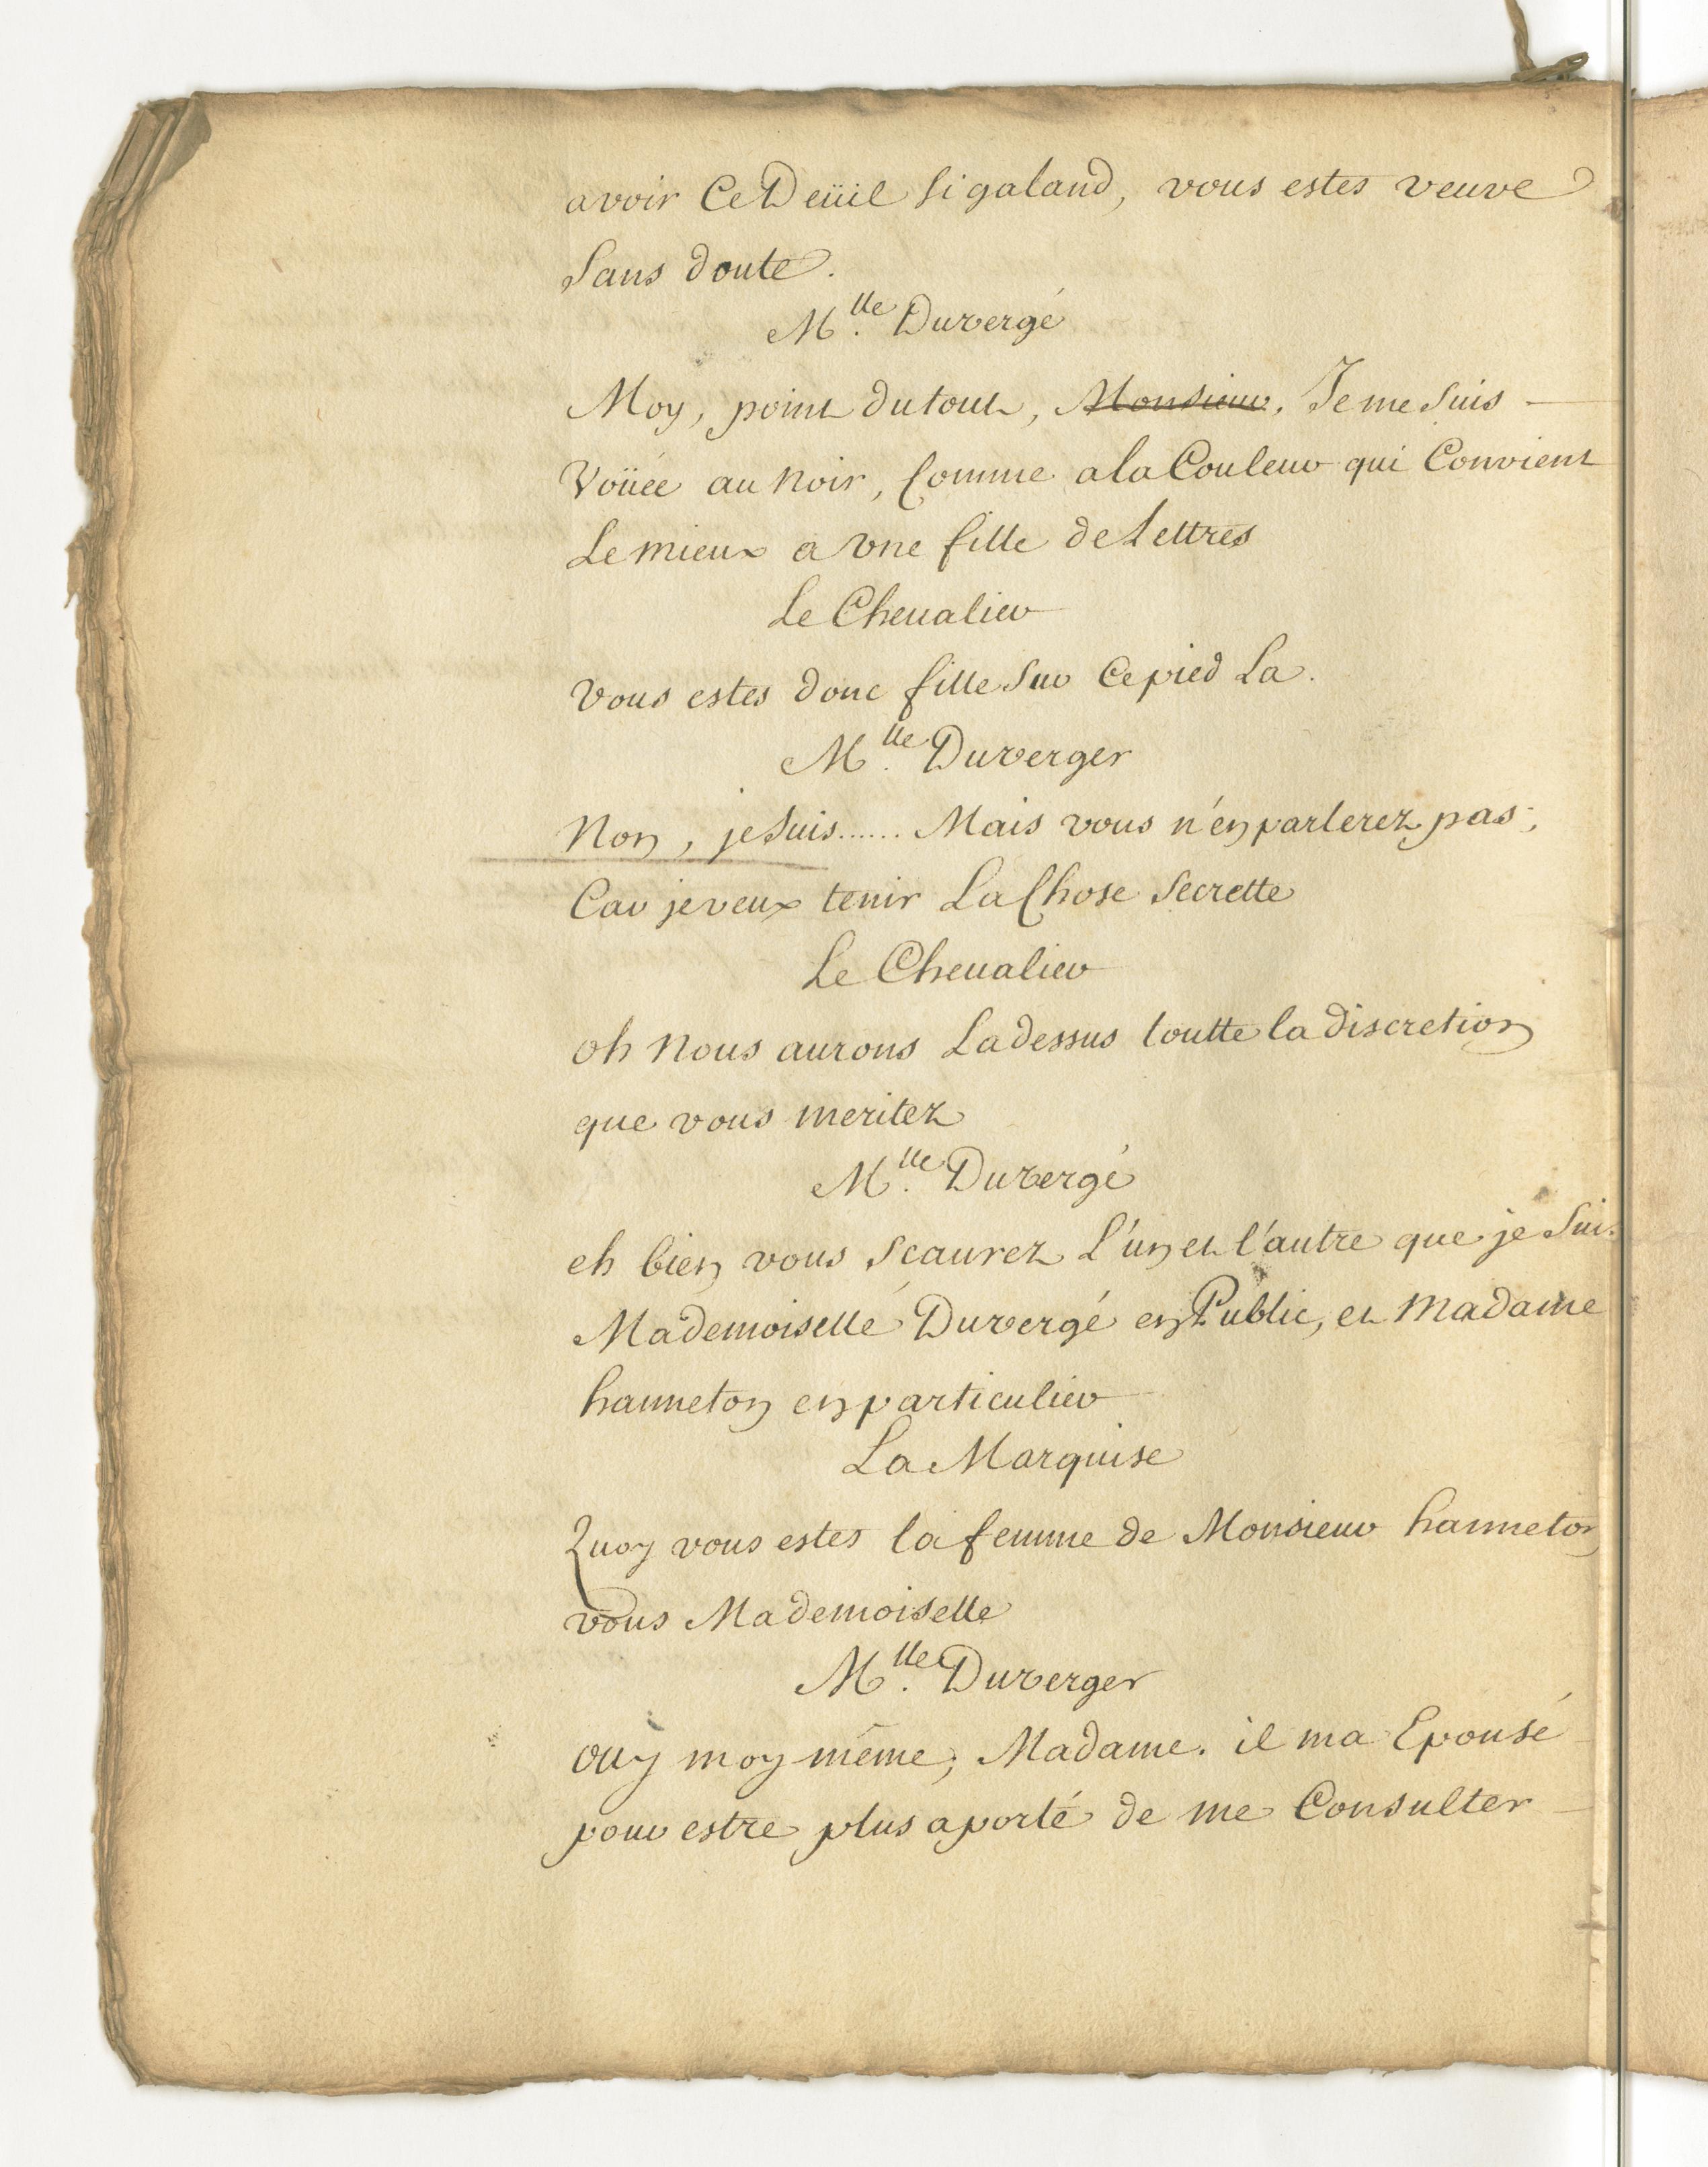 avoir Ce Deüil si galand, vous estes veuve
sans doute.
M.lle Duvergé
Moy, point du tout, Monsieur. Je me suis
Voüée au noir, Comme a la Couleur qui Convient
Le mieux a vne fille de Lettres
Le Cheualier
Vous estes donc fille sur Ce pied La.
M.lle Duverger
Non, je suis...... Mais vous n'en parlerez pas;
Car je veux tenir La Chose secrette
Le Cheualier
oh nous aurons La dessus toutte la discretion
que vous meritez
M.lle Duvergé
eh bien vous scaurez L'un et l'autre que je suis
Mademoiselle Duvergé en Public, et Madame
hanneton en particulier
La Marquise
Quoy vous estes la femme de Monsieur hanneton
vous Mademoiselle
M.lle Duverger
ouy moy même, Madame. il ma Epousé
pour estre plus a porté de me Consulter